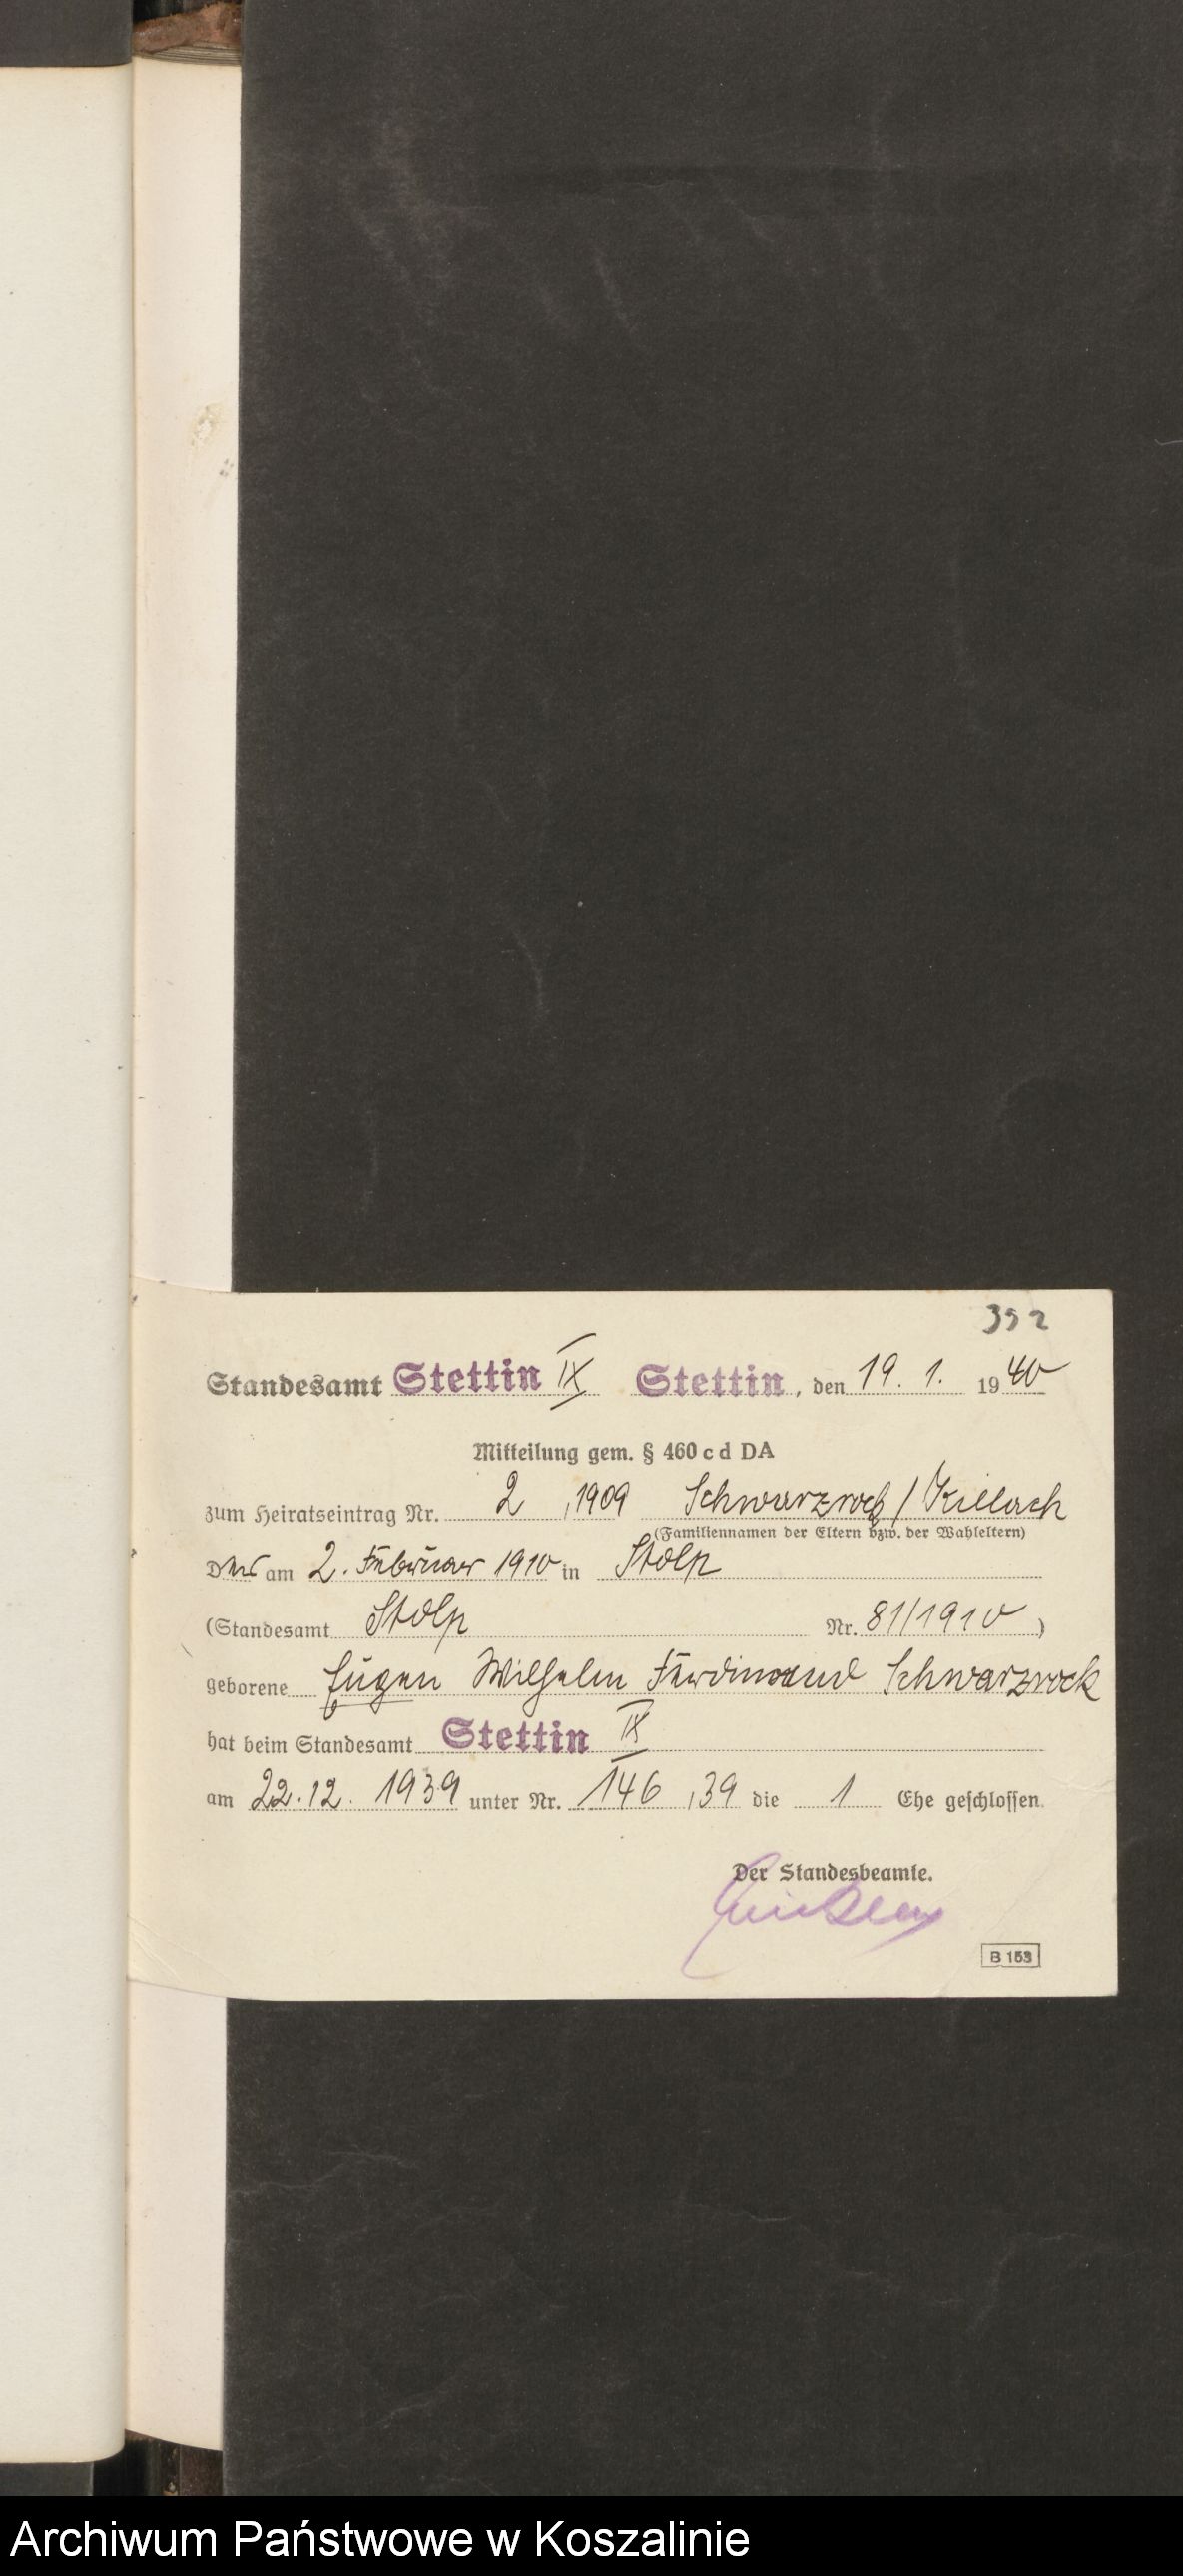 352
Standesamt Stettin IX Stettin, den 19. 1. 1940
Mitteilung gem. § 460 c d DA
zum Heiratseintrag Nr. 2, 1909 Schwarzrock / Killach
(Familiennamen der Eltern bzw. der Wahleltern)
Der am 2. Februar 1910 in Stolp
(Standesamt Stolp Nr. 81/1910)
geborene Eugen Wilhelm Ferdinand Schwarzrock
hat beim Standesamt Stettin IX
am 22.12. 1939 unter Nr. 146, 39 die 1 Ehe geschlossen.
Der Standesbeamte.
B 153
Archiwum Państwowe w Koszalinie